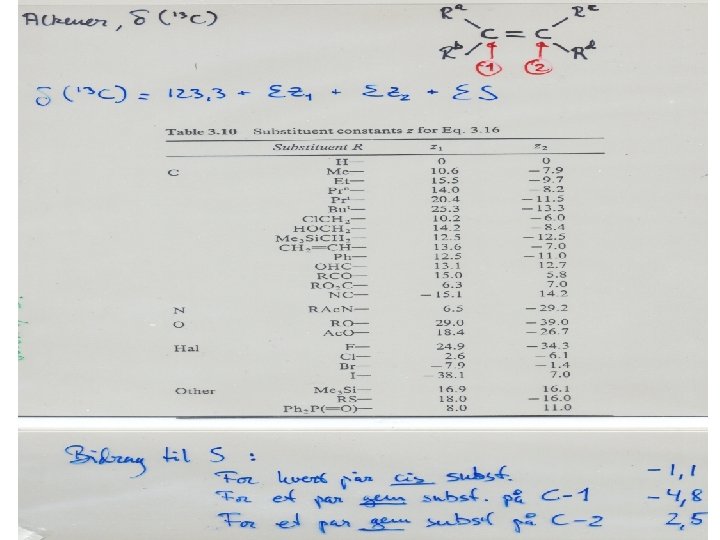 Alkener, δ (¹³C)
Rᵃ Rᶜ
C = C
Rᵇ Rᵈ
① ②
δ (¹³C) = 123,3 + Σz₁ + Σz₂ + ΣS
Table 3.10 Substituent constants z for Eq. 3.16
Substituent R z₁ z₂
H— 0 0
C Me— 10.6 −7.9
Et— 15.5 −9.7
Prⁿ— 14.0 −8.2
Prⁱ— 20.4 −11.5
Buᵗ— 25.3 −13.3
Cl.CH₂— 10.2 −6.0
HOCH₂— 14.2 −8.4
Me₃Si.CH₂— 12.5 −12.5
CH₂=CH— 13.6 −7.0
Ph— 12.5 −11.0
OHC— 13.1 12.7
RCO— 15.0 5.8
RO₂C— 6.3 7.0
NC— −15.1 14.2
N RAcN— 6.5 −29.2
O RO— 29.0 −39.0
AcO— 18.4 −26.7
Hal F— 24.9 −34.3
Cl— 2.6 −6.1
Br— −7.9 −1.4
I— −38.1 7.0
Other Me₃Si— 16.9 16.1
RS— 18.0 −16.0
Ph₂P(=O)— 8.0 11.0
Bidrag til S :
For hvert par cis subst. −1,1
For et par gem subst. på C-1 −4,8
For et par gem subst på C-2 2,5